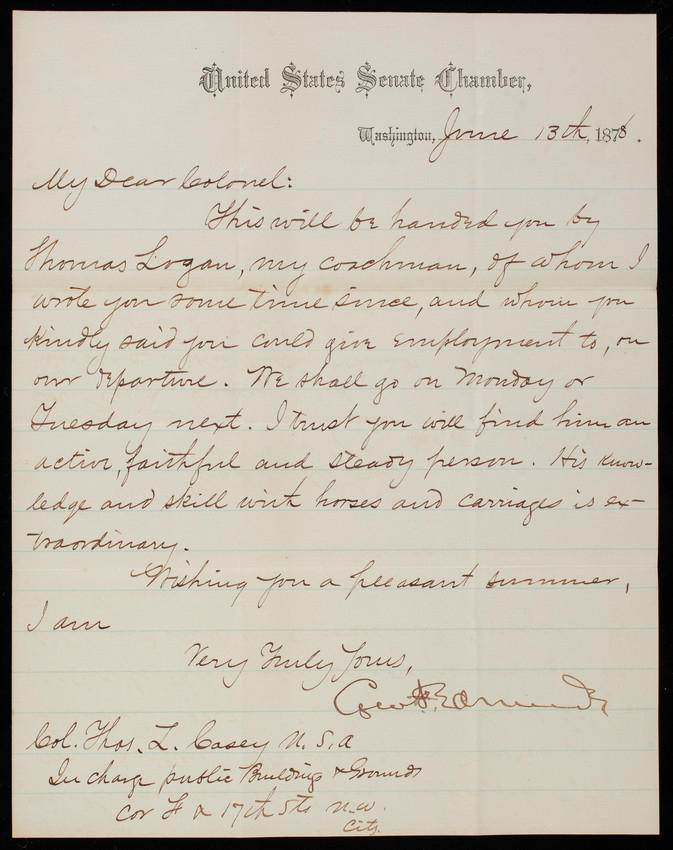 United States Senate Chamber,
Washington, June 13th, 1878.
My Dear Colonel:
This will be handed you by
Thomas Logan, my coachman, of whom I
wrote you some time since, and whom you
kindly said you could give employment to, on
our departure. We shall go on Monday or
Tuesday next. I trust you will find him an
active, faithful and steady person. His know-
ledge and skill with horses and carriages is ex-
traordinary.
Wishing you a pleasant summer,
I am
Very Truly Yours,
Geo F. Edmunds
Col. Thos. L. Casey U.S.A
In charge public Buildings & Grounds
Cor F & 17th Sts N.W.
City.